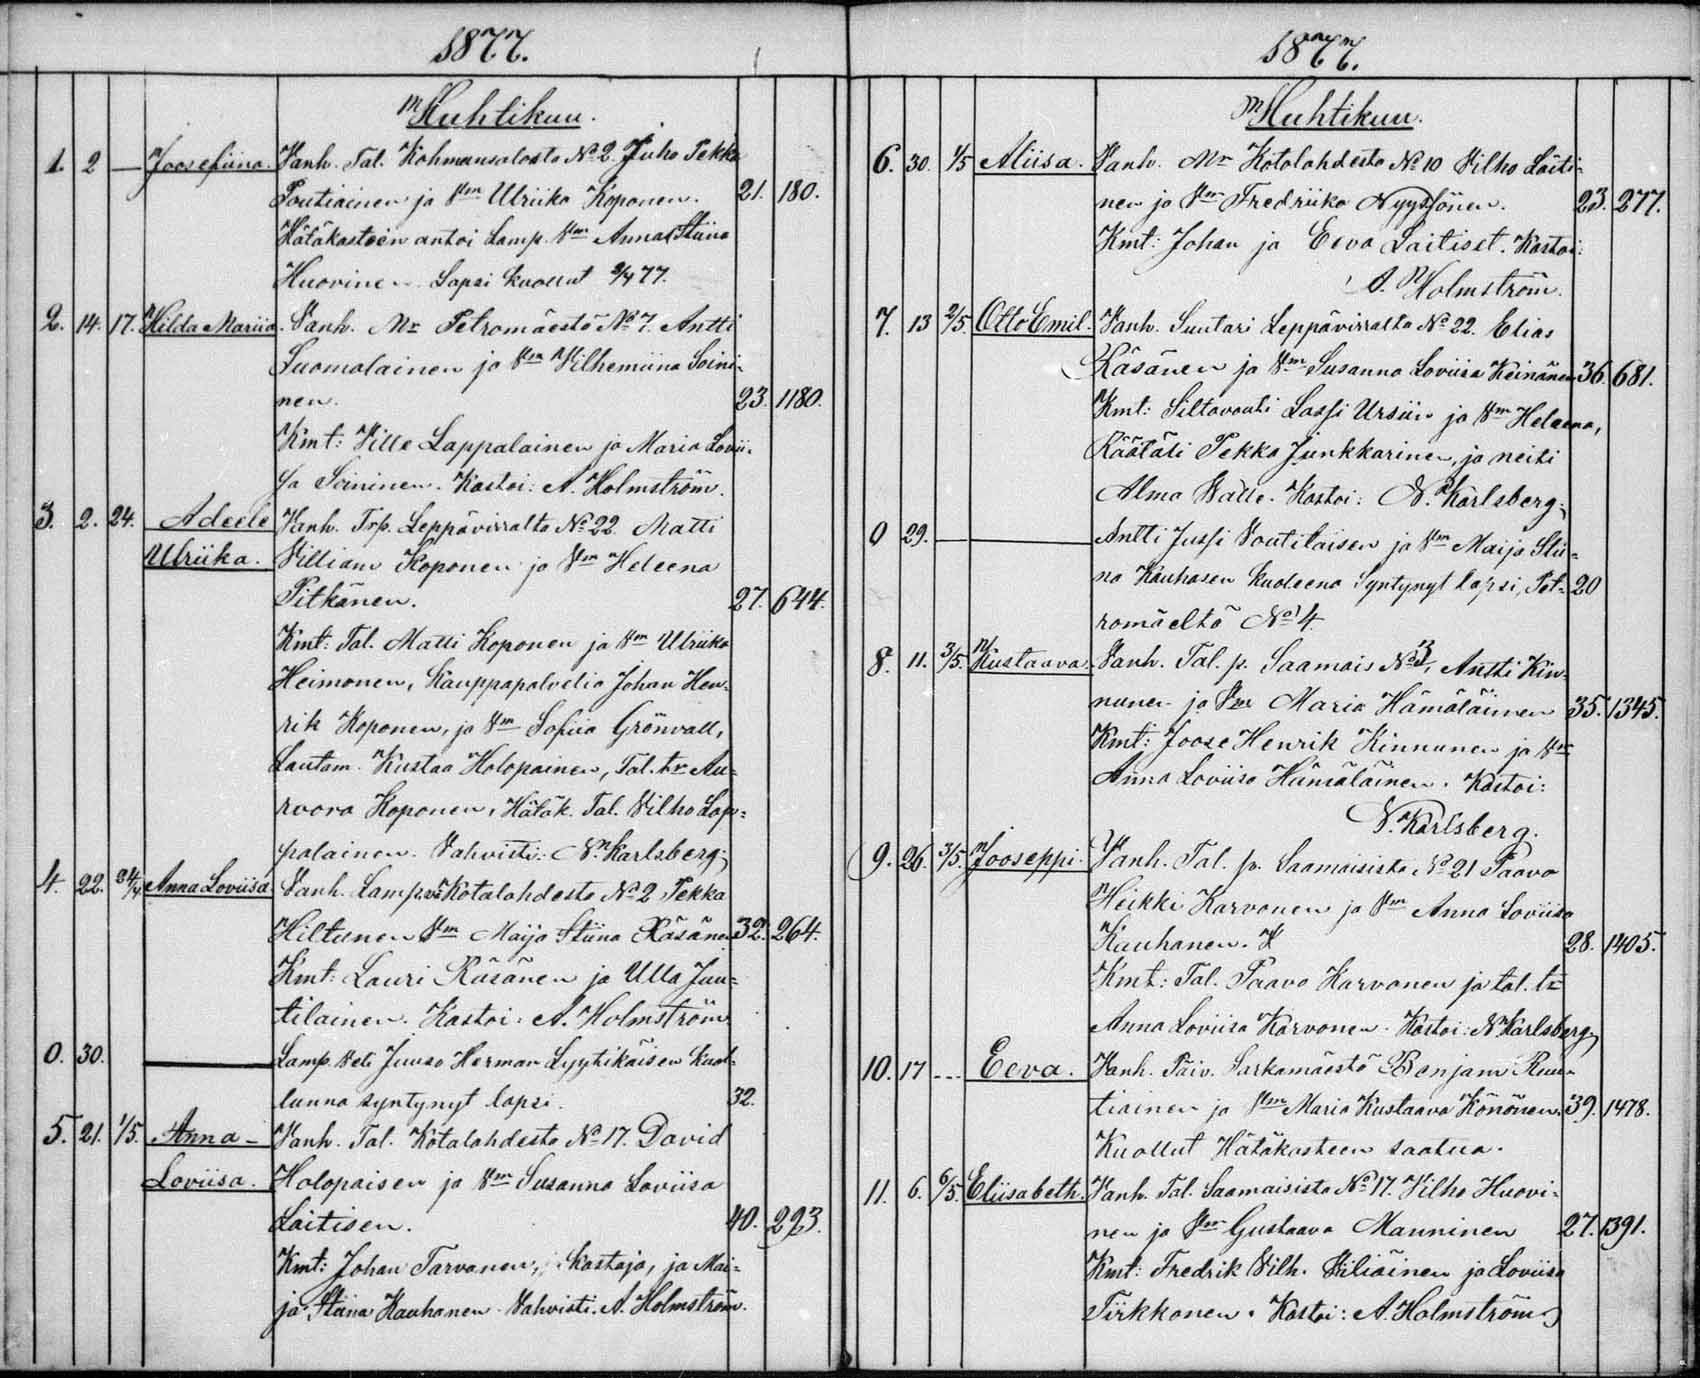 1877.
Huhtikuu.
1. 2 — Joosefiina. Vanh. Tal. Kohmansalosta No 2 Juho Pekka
Poutiainen ja Vm Ulriika Koponen. 21. 180.
Hätäkasteen antoi Lamp. Vm Anna Stiina
Huovinen. Lapsi kuollut 2/4 77.
2. 14. 17. Hilda Mariia. Vanh. Mr Petromäestä No 7. Antti
Suomalainen ja Vm Vilhemiina Soini-
nen. 23. 1180.
Kmt: Ville Lappalainen ja Maria Lovii-
sa Soininen. Kastoi: A. Holmström.
3. 2. 24. Adeele Vanh. Trp. Leppävirralta No 22 Matti
Ulriika. Villiam Koponen ja Vm Heleena
Pitkänen. 27. 644.
Kmt: Tal. Matti Koponen ja Vm Ulriika
Heimonen, Kauppapalvelia Johan Hen-
rik Koponen, ja Vm Sofiia Grönvall,
Lautam. Kustaa Holopainen, Tal. tr Au-
roora Koponen, Hätäk. Tal. Vilho Lap-
palainen. Vahvisti: N. Karlsberg.
4. 22. 24/4 Anna Loviisa. Vanh. Lamp. Kotalahdesta No 2 Pekka
Hiltunen Vm Maija Stiina Räsänen 32. 264.
Kmt: Lauri Räsänen ja Ulla Juu-
tilainen. Kastoi: A. Holmström
0. 30. — Lamp. Veti Juuso Herman Lyytikäisen kuol-
lunna syntynyt lapsi. 32.
5. 21. 1/5. Anna- Vanh. Tal. Kotalahdesta No 17. David
Loviisa. Holopaisen ja Vm Susanna Loviisa
Laitisen. 40. 293.
Kmt: Johan Tarvanen, kastaja, ja Mai-
ja Stiina Kauhanen. Vahvisti. A. Holmström.
1877.
Huhtikuu.
6. 30. 1/5 Aliisa. Vanh. Mr Kotolahdesta No 10 Vilho Laiti-
nen ja Vm Fredriika Nyyssönen. 23. 277.
Kmt: Johan ja Eeva Laitiset. Kastoi:
A. Holmström.
7. 13 2/5. Otto Emil. Vanh. Suutari Leppävirralta No 22. Elias
Räsänen ja Vm Susanna Loviisa Keinänen 36. 681.
Kmt: Siltavouti Lassi Ursiin ja Vm Heleena,
Räätäli Pekka Junkkarinen, ja neiti
Alma Kastoi: N. Karlsberg.
0 29. — — Antti Jussi Voutilaisen ja Vm Maija Stii-
na Kauhasen kuoleena syntynyt lapsi, Pet- 20
romäeltä No 4.
8. 11. 3/5. Kustaava. Vanh. Tal. p. Saamais No 3, Antti Kin-
nunen ja Vm Maria Hämäläinen 35. 1345.
Kmt: Joose Henrik Kinnunen ja Vm
Anna Loviisa Hämäläinen. Kastoi:
N. Karlsberg.
9. 26. 3/5. Jooseppi. Vanh. Tal. p. Saamaisista No 21 Paavo
Heikki Karvonen ja Vm Anna Loviisa
Kauhanen. 28. 1405.
Kmt: Tal. Paavo Karvonen ja tal. tr
Anna Loviisa Karvonen. Kastoi: N. Karlsberg
10. 17 --- Eeva. Vanh. Päiv. Sarkamäestä Benjam Ruu-
tiainen ja Vm Maria Kustaava Könönen. 39. 1478.
Kuollut Hätäkasteen saatua.
11. 6. 6/5. Eliisabeth. Vanh. Tal. Saamaisista No 17. Vilho Huovi-
nen ja Vm Gustaava Manninen 27. 1391.
Kmt: Fredrik Vilh. Viliäinen ja Loviisa
Tirkkonen. Kastoi: A. Holmström